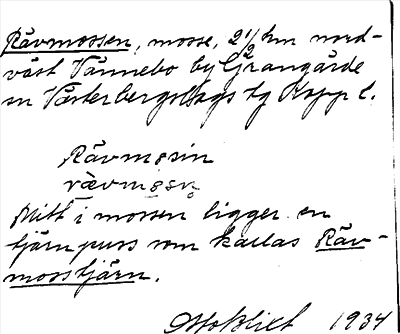 Rävmossen, mosse, 2 1/2 km nord-
väst Vännebo by Grangärde
sn Västerbergslags tg Kopp l.
Rävmosin
rævmosn̥
Mitt i mossen ligger en
tjärnpuss som kallas Räv-
mosstjärn.
1934